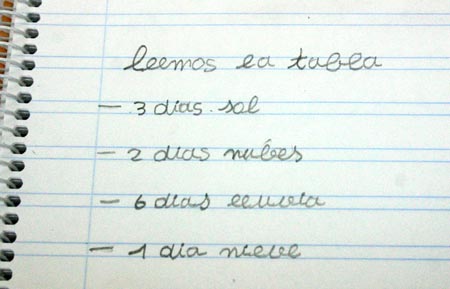 leemos la tabla
- 3 dias sol
- 2 dias nubes
- 6 dias lluvia
- 1 dia nieve